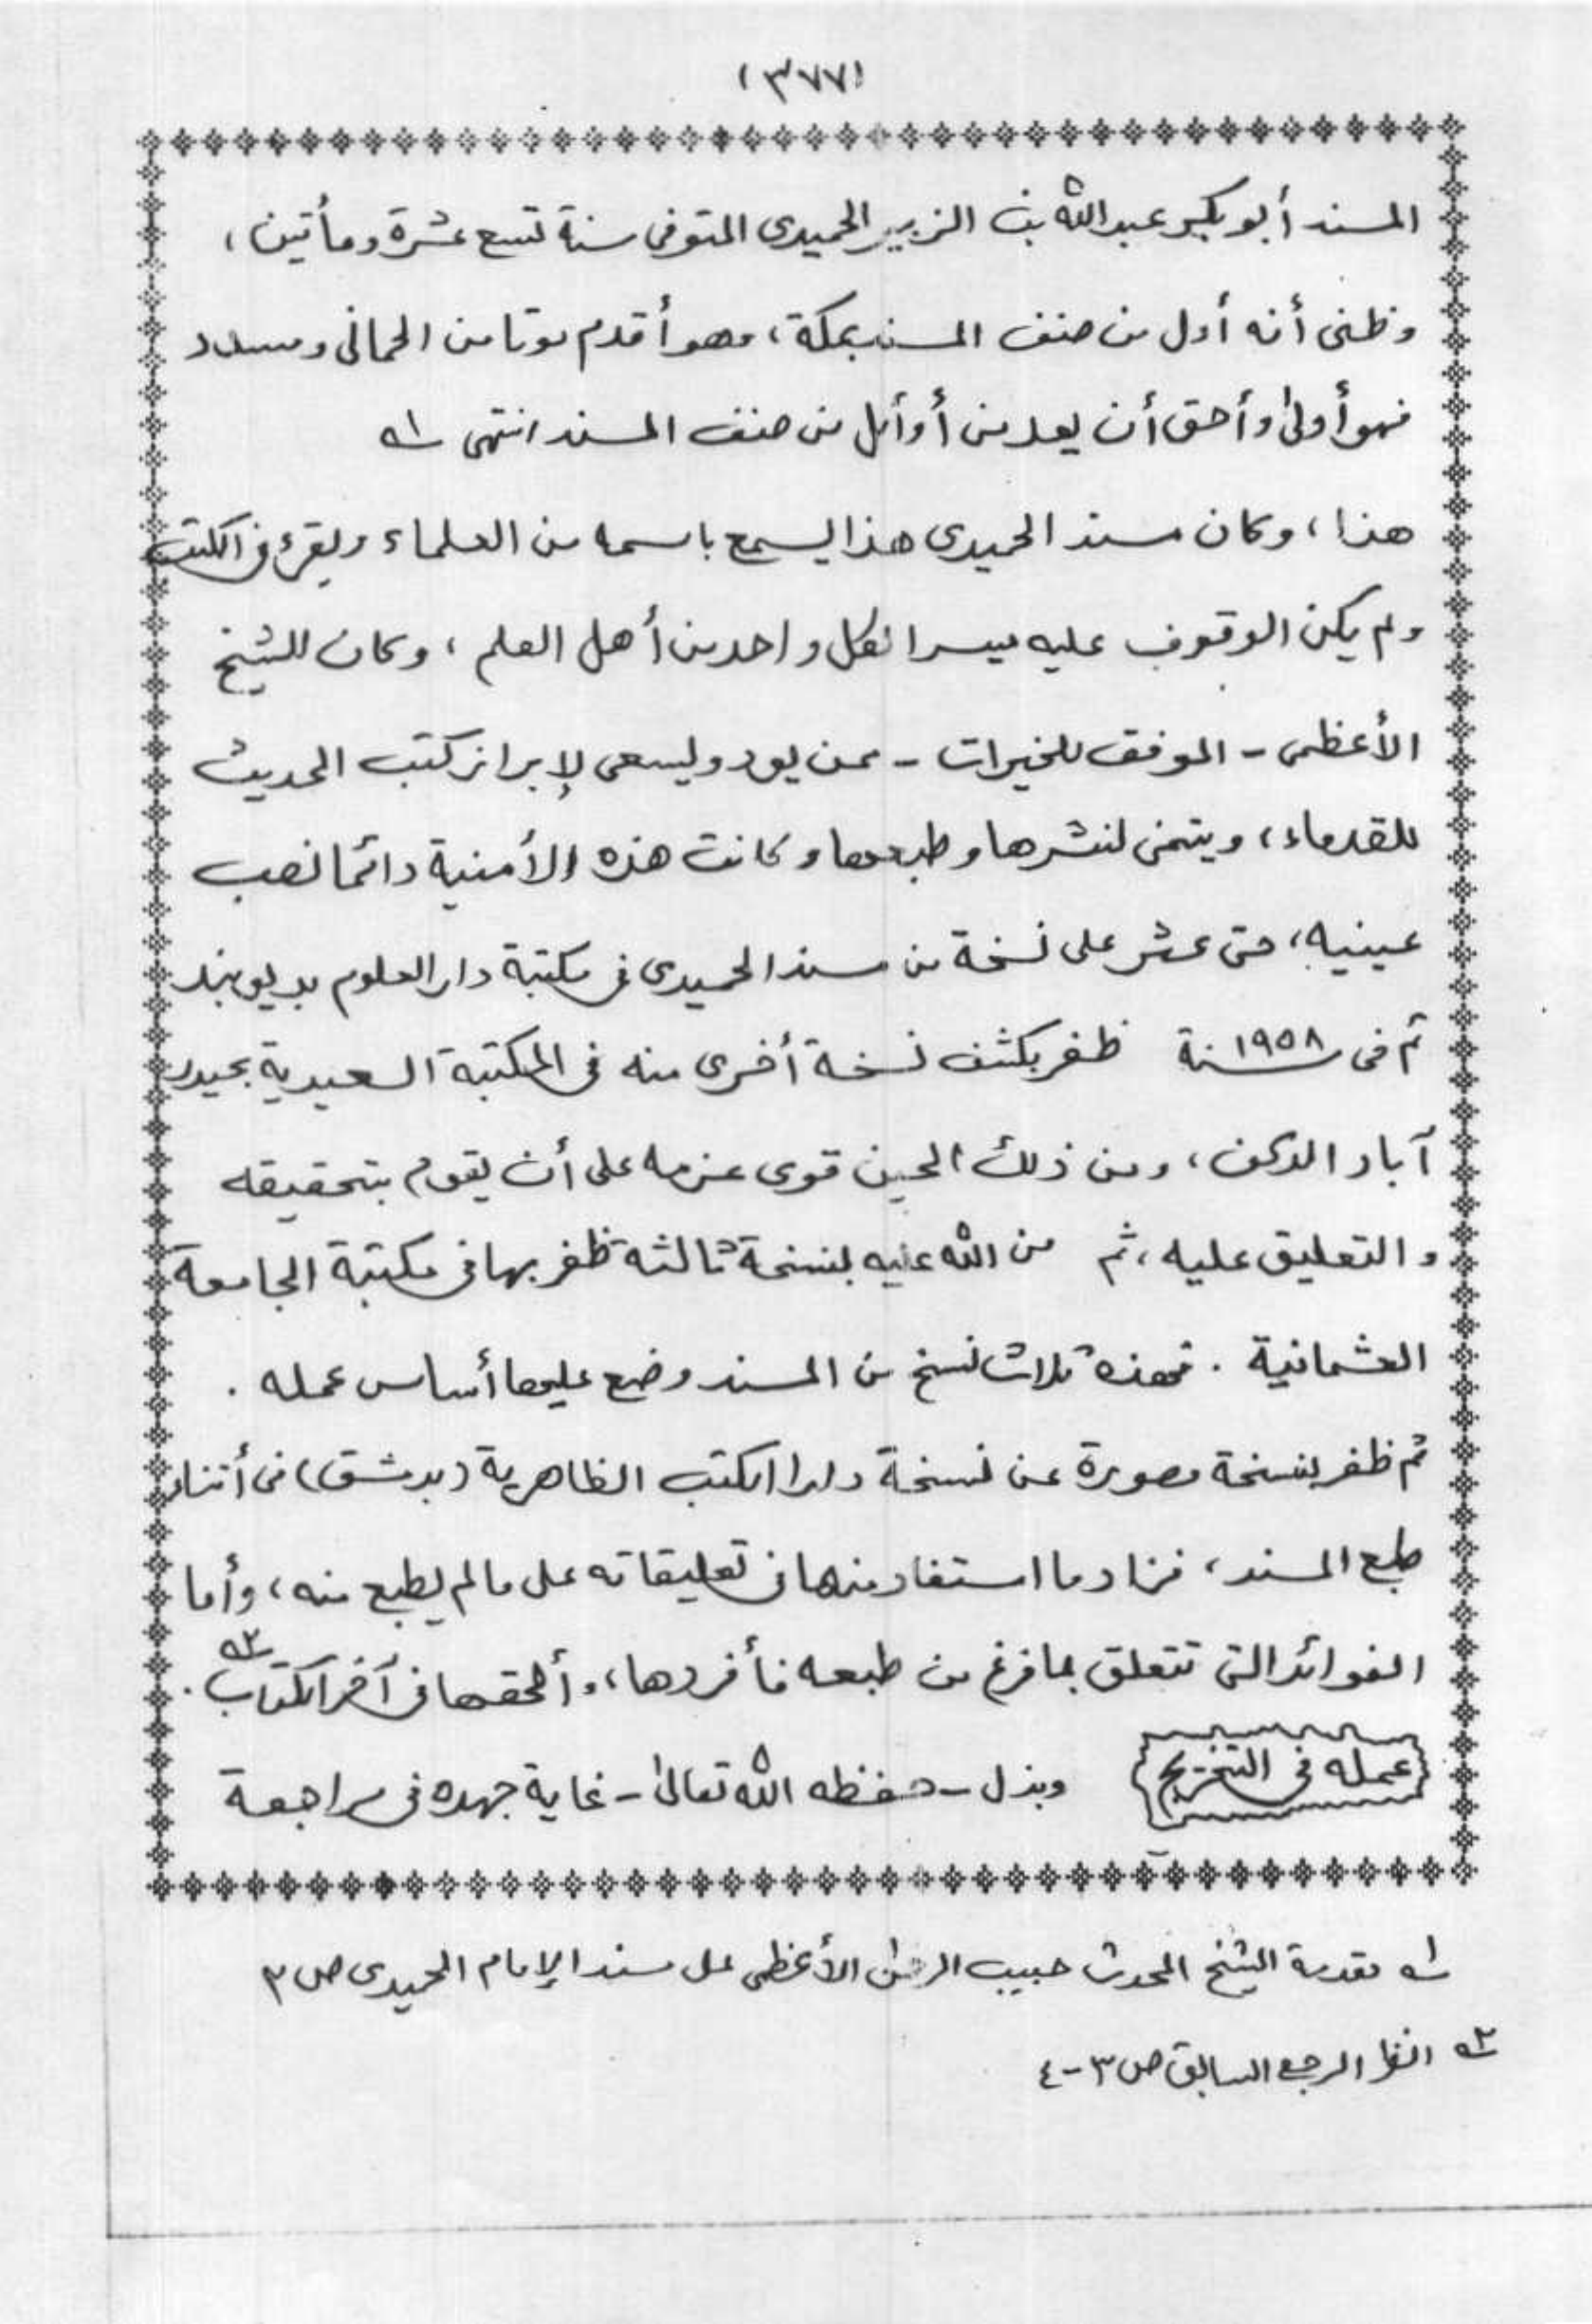 (٣٧٧)
المسند أبو بكر عبد الله بن الزبير الحميدى المتوفى سنة تسع عشرة ومأتين ،
وظنى أنه أول من صنف المسند بمكة ، وهو أقدم موتا من الحمانى ومسدد
فهو أولى وأحق أن يعد من أوائل من صنف المسند انتهى ١ه
هذا ، وكان مسند الحميدى هذا يسمع باسمه من العلماء ويقرء فى الكتب
ولم يكن الوقوف عليه ميسرا لكل واحد من أهل العلم ، وكان للشيخ
الأعظمى - الموفق للخيرات - ممن يود ويسعى لإبراز كتب الحديث
للقدماء ، ويتمنى لنشرها وطبعها وكانت هذه الأمنية دائما نصب
عينيه ، حتى عثر على نسخة من مسند الحميدى فى مكتبة دار العلوم بديوبند
ثم فى سنة ١٩٥٨ ظفر بكشف نسخة أخرى منه فى المكتبة السعيدية بحيدر
آباد الدكن ، ومن ذلك الحين قوى عزمه على أن يقوم بتحقيقه
والتعليق عليه ، ثم من الله عليه بنسخة ثالثة ظفر بها فى مكتبة الجامعة
العثمانية . فهذه ثلاث نسخ من المسند وضع عليها أساس عمله .
ثم ظفر بنسخة مصورة عن نسخة دار الكتب الظاهرية (بدمشق) فى أثناء
طبع المسند ، فزاد ما استفاد منها فى تعليقاته على ما لم يطبع منه ، وأما
الفوائد التى تتعلق بما فرغ من طبعه فأفردها ، وألحقها فى آخر الكتاب ٢ه .
عمله فى التخريج وبذل - حفظه الله تعالى - غاية جهده فى مراجعة
١ه مقدمة الشيخ المحدث حبيب الرحمن الأعظمى على مسند الإمام الحميدى ص ٣
٢ه انظر المرجع السابق ص ٣-٤